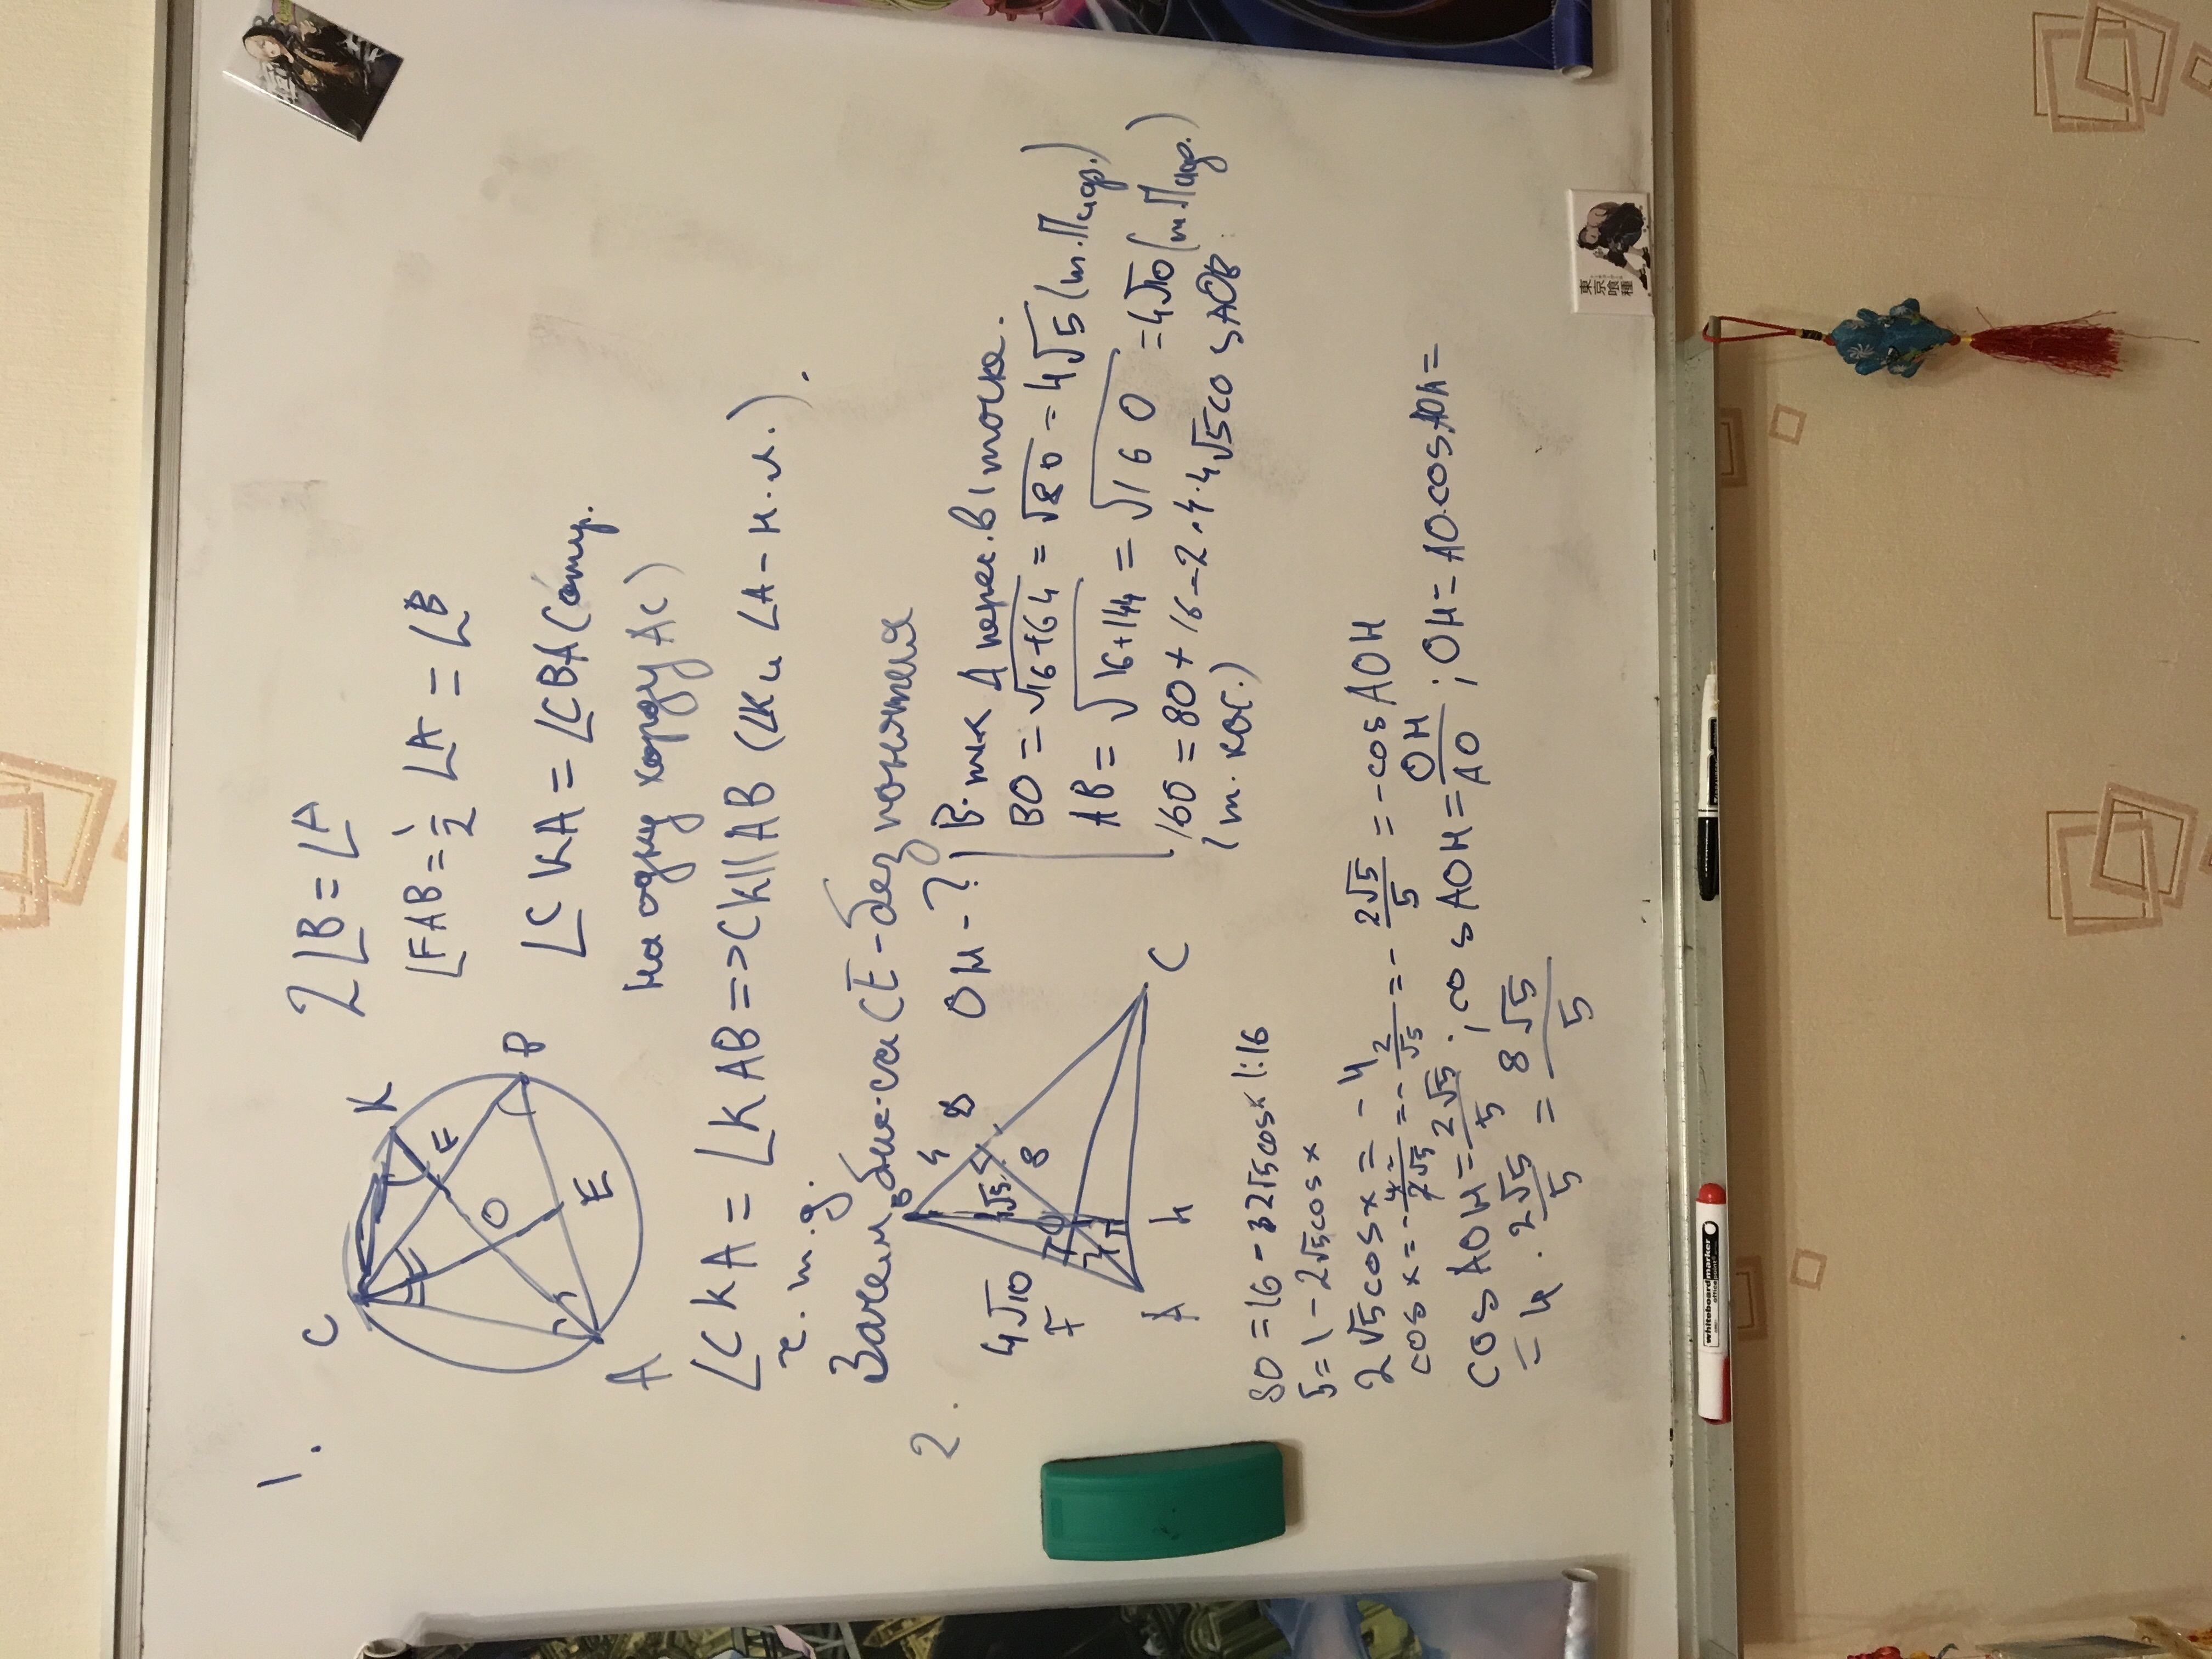 1.
C
K
F
O
B
E
A
2∠B=∠A
∠FAB=1/2 ∠A=∠B
∠CKA=∠CBA(опир.
на одну хорду AC)
∠CKA=∠KAB=>CK||AB (∠K и ∠A-н.л.).
ч.т.д.
Зачем бис-са CE-без понятия
2.
B
4
8
4√5
8
4√10
F
O
4
A
H
C
OH-?
В. тик Δ перес. в 1 точке.
BO=√16+64=√80=4√5(т.Пиф.)
AB=√16+144=√160=4√10(т.Пиф.)
160=80+16-2·4·4√5cosAOB
(т.кос.)
80=16-32√5cosx 1:16
5=1-2√5cosx
2√5cosx=-4
cosx=-4/2√5=-2/√5=-2√5/5=-cosAOH
cosAOH=2√5/5; cosAOH=OH/AO; OH=AO·cosAOH=
=4·2√5/5=8√5/5
whiteboard marker
東京喰種